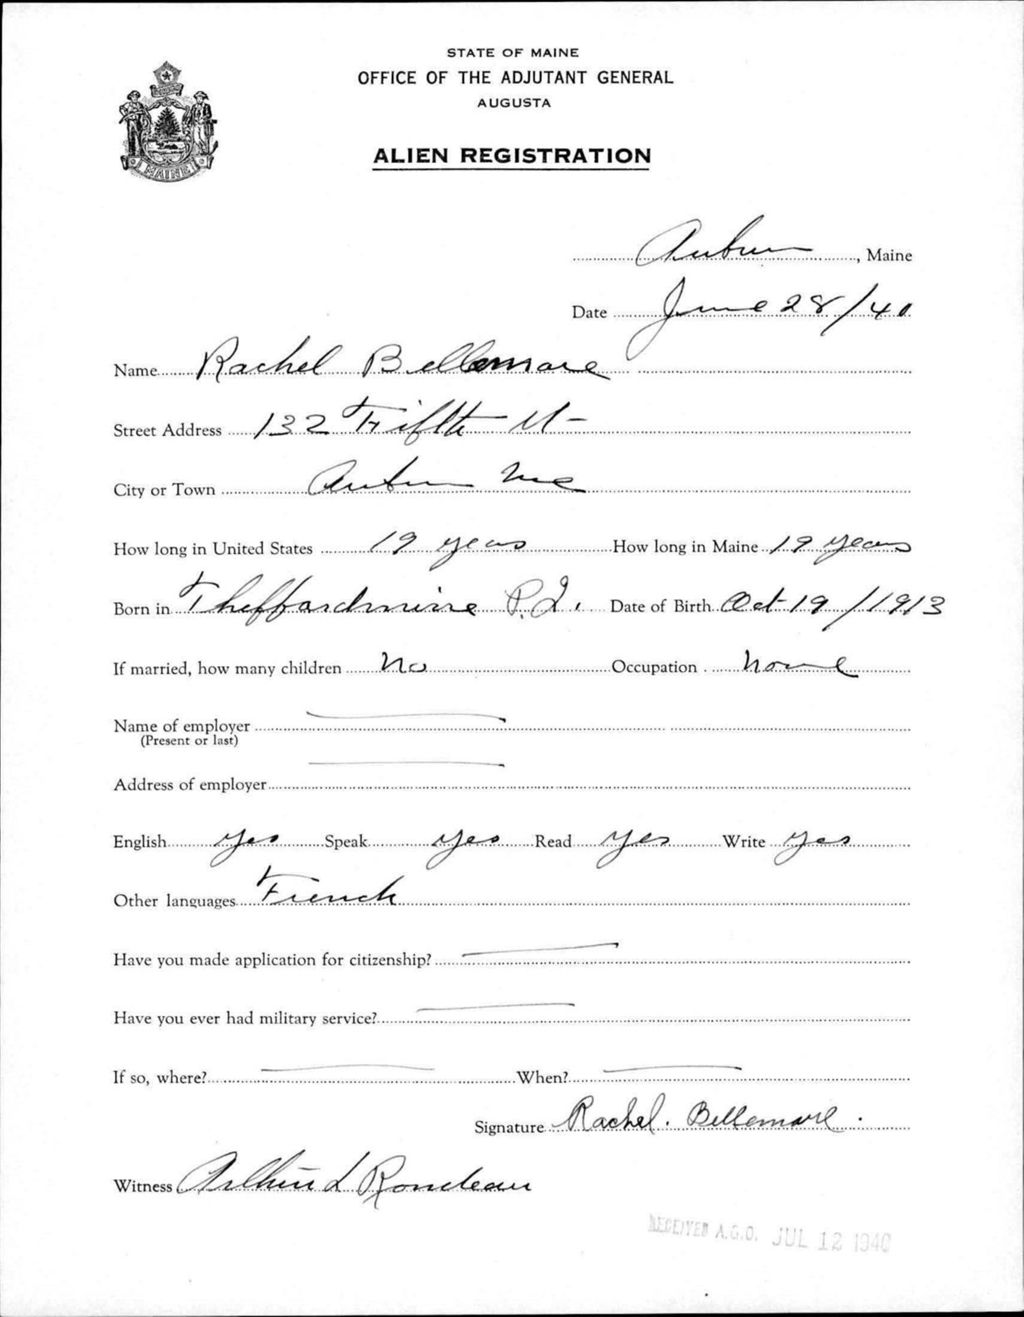 STATE OF MAINE
OFFICE OF THE ADJUTANT GENERAL
AUGUSTA
ALIEN REGISTRATION
MAINE
Auburn, Maine
Date June 28/40
Name Rachel Bellemare
Street Address 132 Fifth St
City or Town Auburn Me
How long in United States 19 years How long in Maine 19 years
Born in Theffordmine P.Q. Date of Birth Oct 19/1913
If married, how many children No Occupation none
Name of employer
(Present or last)
Address of employer
English yes Speak yes Read yes Write yes
Other languages French
Have you made application for citizenship?
Have you ever had military service?
If so, where? When?
Signature Rachel. Bellemare.
Witness Arthur L Rondeau
RECEIVED A.G.O. JUL 12 1940